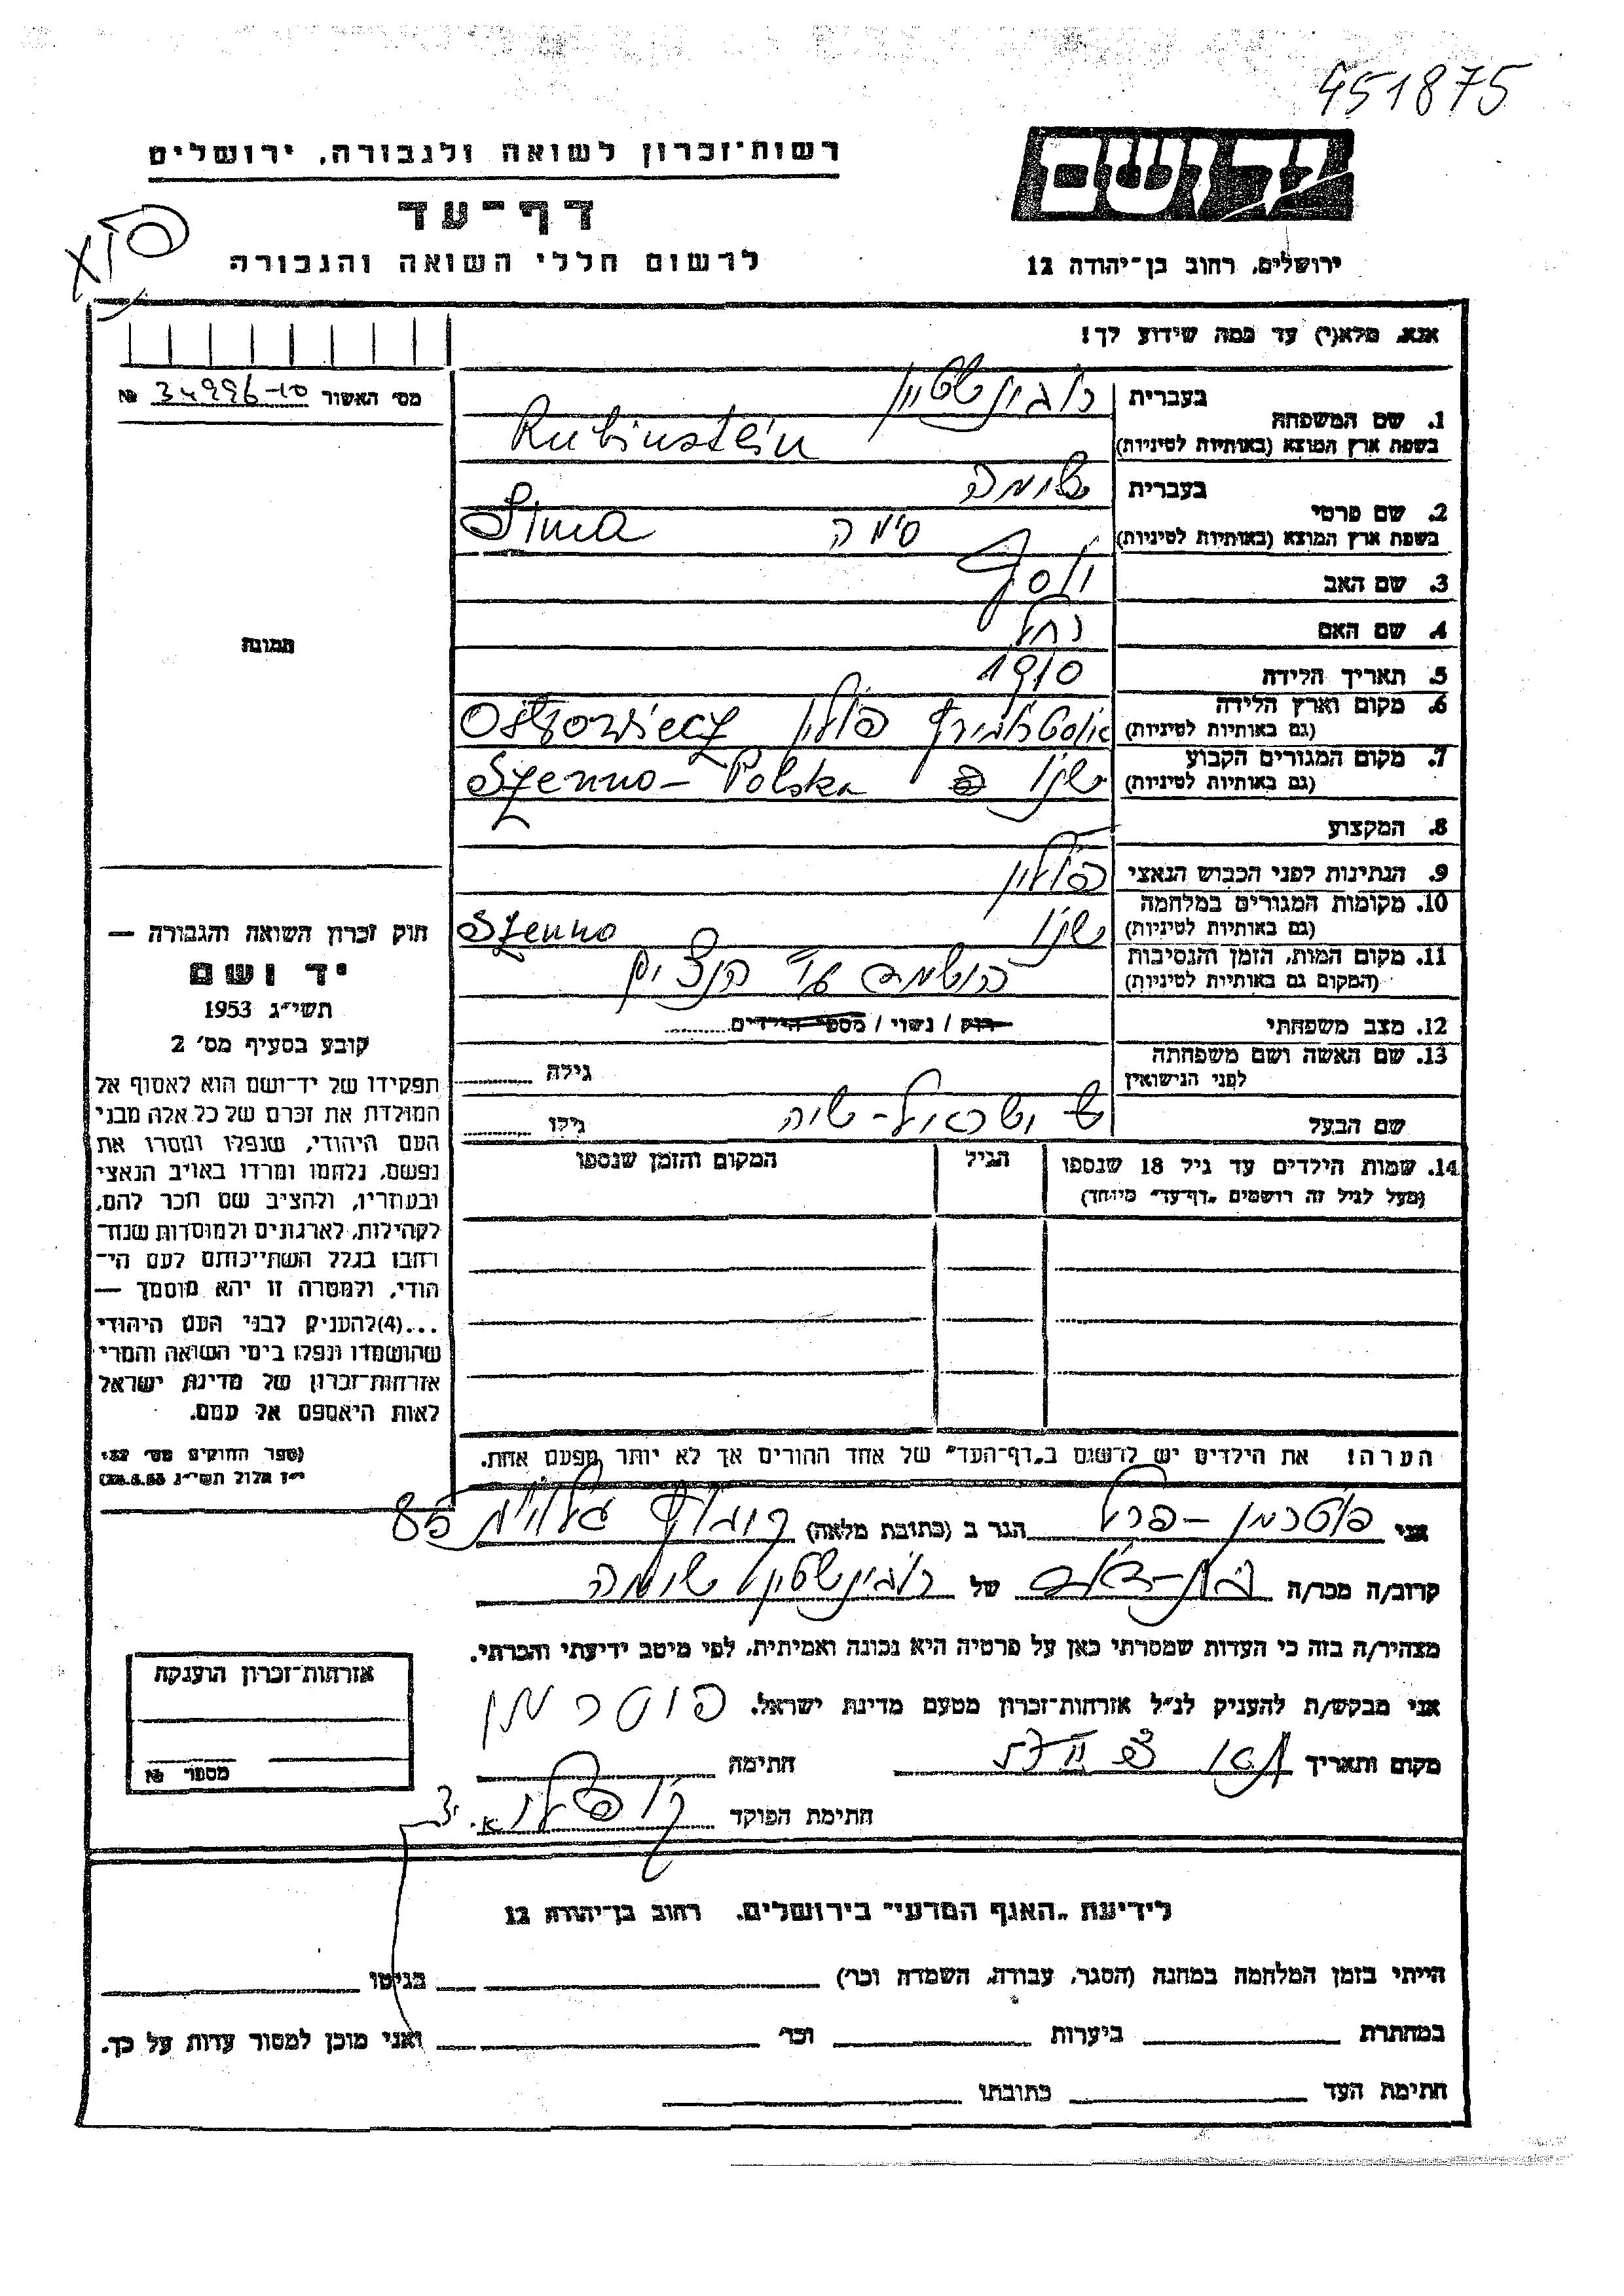 451875
יד ושם
רשות־זכרון לשואה ולגבורה, ירושלים
דף־עד
לרשום חללי השואה והגבורה
ירושלים, רחוב בן־יהודה 12
אנא, מלא(י) עד כמה שידוע לך!
מס׳ האשור № 34996-10
1. שם המשפחה
בעברית רובינשטיין
בשפת ארץ המוצא (באותיות לטיניות) Rubinstein
2. שם פרטי
בעברית שימה
בשפת ארץ המוצא (באותיות לטיניות) סימה Sima
3. שם האב יוסף
4. שם האם רחל
5. תאריך הלידה 1910
6. מקום וארץ הלידה
(גם באותיות לטיניות) פולין Ostrowiecz
7. מקום המגורים הקבוע
(גם באותיות לטיניות) שינו Szenno - Polska
8. המקצוע
9. הנתינות לפני הכבוש הנאצי פולין
10. מקומות המגורים במלחמה
(גם באותיות לטיניות) שינו Szenno
11. מקום המות, הזמן והנסיבות
(המקום גם באותיות לטיניות) הושמד ע"י הנצים
12. מצב משפחתי רווק / נשוי / מספר הילדים
13. שם האשה ושם משפחתה
לפני הנישואין גילה
שם הבעל ישראל - שיה גילו
14. שמות הילדים עד גיל 18 שנספו הגיל המקום והזמן שנספו
(מעל לגיל זה רושמים „דף־עד״ מיוחד)
הערה! את הילדים יש לרשום ב„דף־העד״ של אחד ההורים אך לא יותר מפעם אחת.
תמונה
חוק זכרון השואה והגבורה —
יד ושם
תשי״ג 1953
קובע בסעיף מס׳ 2
תפקידו של יד־ושם הוא לאסוף אל
המולדת את זכרם של כל אלה מבני
העם היהודי, שנפלו ומסרו את
נפשם, נלחמו ומרדו באויב הנאצי
ובעוזריו, ולהציב שם וזכר להם,
לקהילות, לארגונים ולמוסדות שנח־
רבו בגלל השתייכותם לעם הי־
הודי, ולמטרה זו יהא מוסמך —
...(4)להעניק לבני העם היהודי
שהושמדו ונפלו בימי השואה והמרי
אזרחות־זכרון של מדינת ישראל
לאות היאספם אל עמם.
(ספר החוקים מס׳ 132,
י״ז אלול תשי״ג 28.8.53)
אני פוטרמן - פרל הגר ב (כתובת מלאה) 85
קרוב/ה מכר/ה בת-דוד של רובינשטיין שימה
מצהיר/ה בזה כי העדות שמסרתי כאן על פרטיה היא נכונה ואמיתית, לפי מיטב ידיעתי והכרתי.
אני מבקש/ת להעניק לנ״ל אזרחות־זכרון מטעם מדינת ישראל. פוטרמן
מקום ותאריך חתימה
חתימת הפוקד
אזרחות־זכרון הוענקה
מספר №
לידיעת „האגף המדעי״ בירושלים, רחוב בן־יהודה 12
הייתי בזמן המלחמה במחנה (הסגר, עבודה, השמדה וכו׳) בגיטו
במחתרת ביערות וכו׳ ואני מוכן למסור עדות על כך.
חתימת העד כתובתו